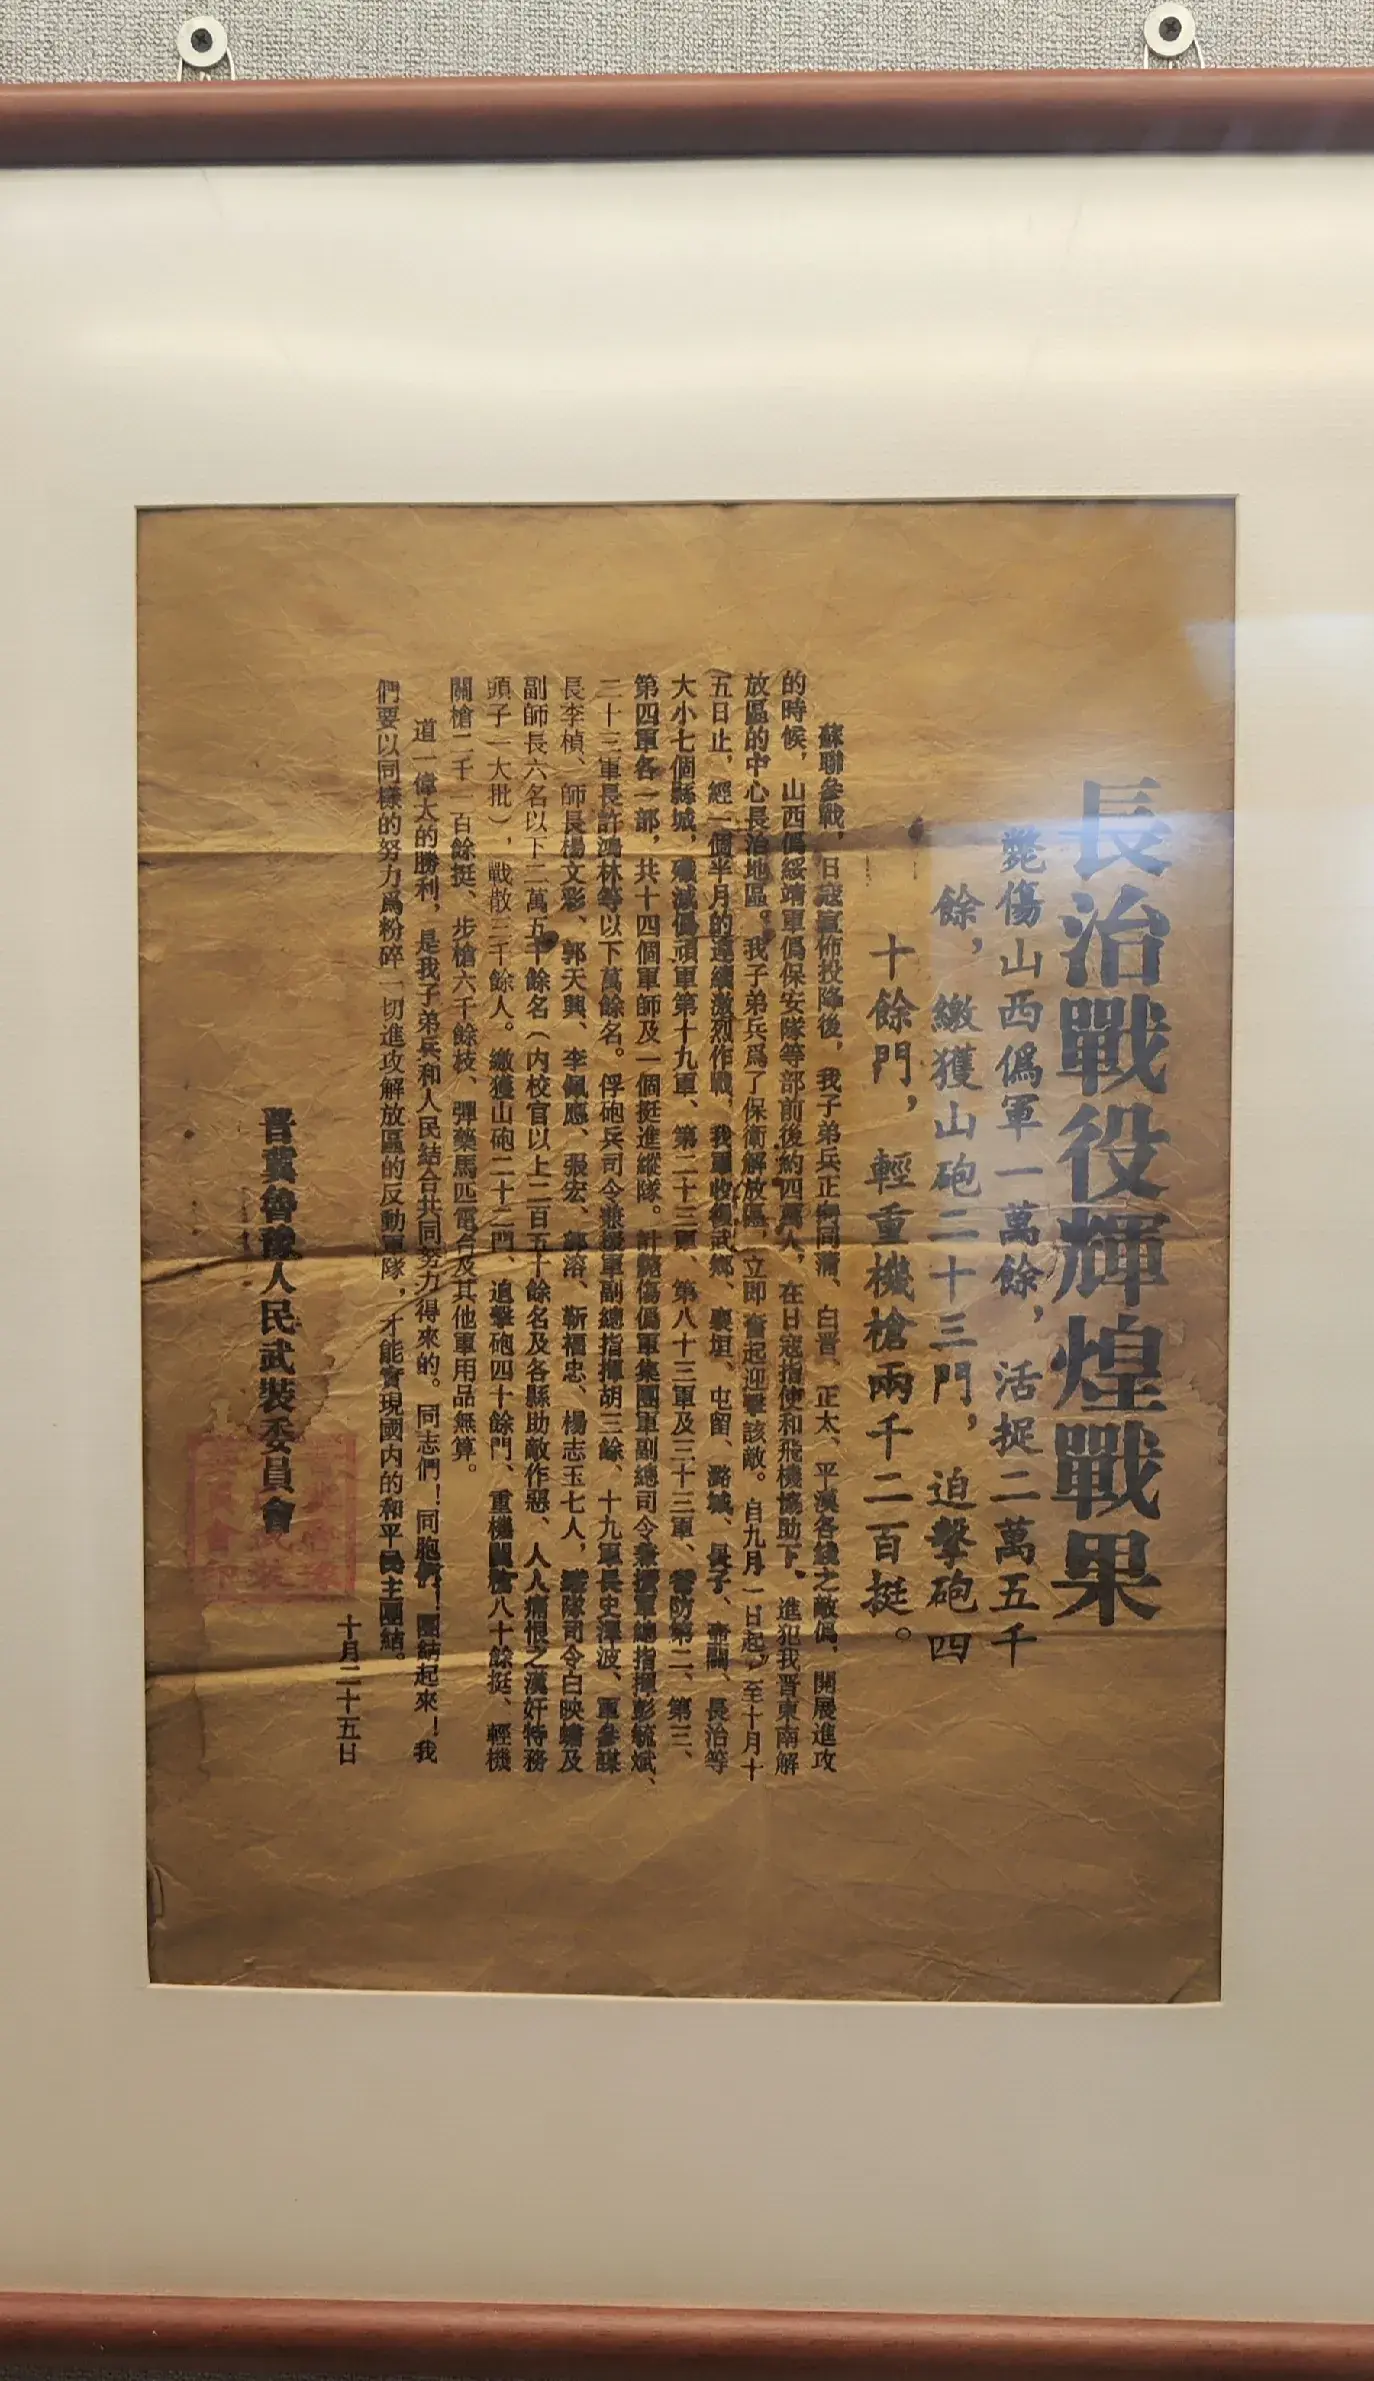 長治戰役輝煌戰果
斃傷山西僞軍一萬餘，活捉二萬五千
餘，繳獲山砲二十三門，迫擊砲四
十餘門，輕重機槍兩千二百挺。
蘇聯參戰，日寇宣佈投降後，我子弟兵正向同蒲、白晋、正太、平漢各綫之敵僞，開展進攻
的時候，山西僞綏靖軍僞保安隊等部前後約四萬人，在日寇指使和飛機協助下，進犯我晋東南解
放區的中心長治地區。我子弟兵爲了保衛解放區，立即奮起迎擊該敵。自九月一日起，至十月十
五日止，經一個半月的連續激烈作戰，我軍收復武鄉、襄垣、屯留、潞城、長子、壺關、長治等
大小七個縣城，殲滅僞頑軍第十九軍、第二十三軍、第八十三軍及三十三軍、警防第二、第三、
第四軍各一部，共十四個軍師及一個挺進縱隊。計斃傷僞軍集團軍副總司令兼援軍總指揮彭毓斌、
三十三軍長許鴻林等以下萬餘名。俘砲兵司令兼援軍副總指揮胡三餘、十九軍長史澤波、軍參謀
長李楨、師長楊文彩、郭天興、李佩應、張宏、郭溶、靳福忠、楊志玉七人，縱隊司令白映蟾及
副師長六名以下二萬五千餘名（内校官以上二百五十餘名及各縣助敵作惡、人人痛恨之漢奸特務
頭子一大批），戰散三千餘人。繳獲山砲二十二門、迫擊砲四十餘門、重機關槍八十餘挺、輕機
關槍二千一百餘挺、步槍六千餘枝、彈藥馬匹電台及其他軍用品無算。
這一偉大的勝利，是我子弟兵和人民結合共同努力得來的。同志們！同胞們！團結起來！我
們要以同樣的努力爲粉碎一切進攻解放區的反動軍隊，才能實現國内的和平民主團結。
十月二十五日
晋冀魯豫人民武裝委員會